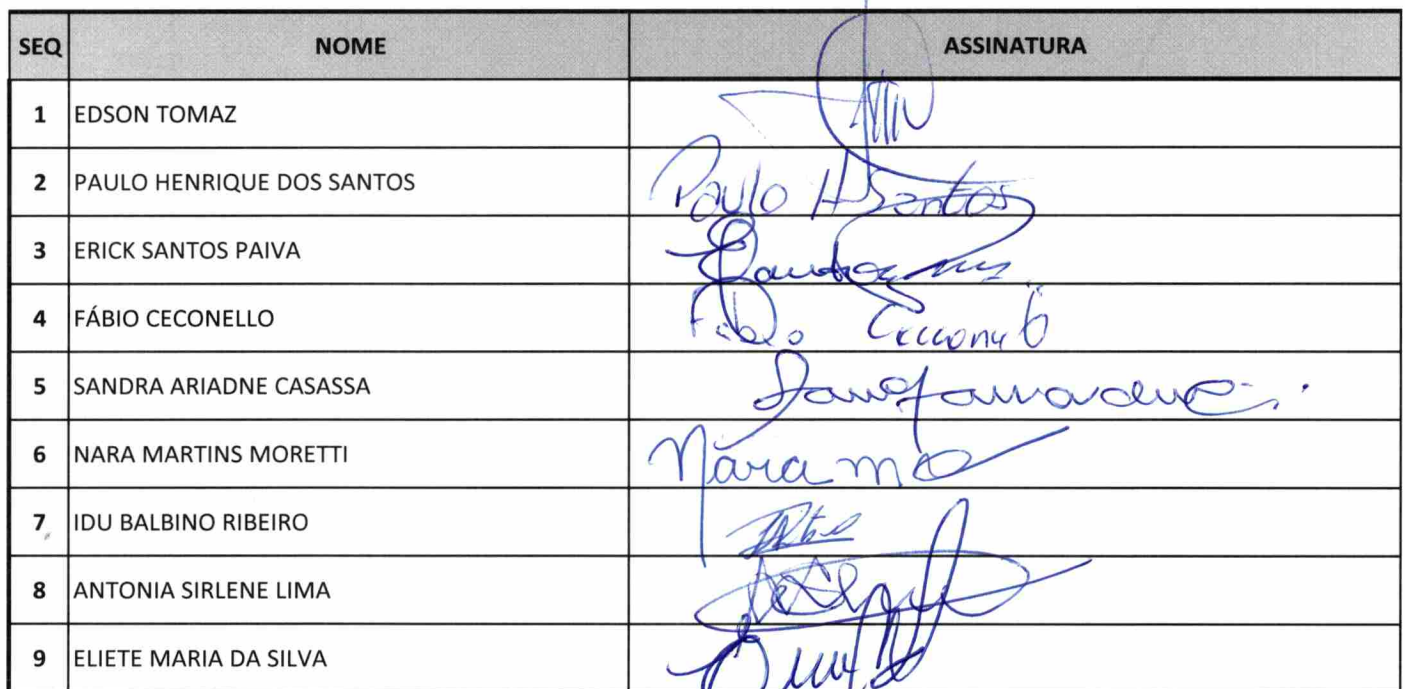 SEQ NOME ASSINATURA
1 EDSON TOMAZ
2 PAULO HENRIQUE DOS SANTOS Paulo H Santos
3 ERICK SANTOS PAIVA
4 FÁBIO CECONELLO Fábio
5 SANDRA ARIADNE CASASSA
6 NARA MARTINS MORETTI Nara
7 IDU BALBINO RIBEIRO
8 ANTONIA SIRLENE LIMA
9 ELIETE MARIA DA SILVA